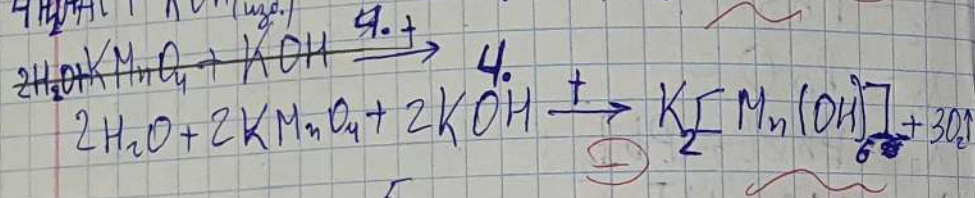 (изб.)
2H₂O+KMnO₄ + KOH 4. t →
4.
2H₂O + 2KMnO₄ + 2KOH t → K₂[Mn(OH)₆] + 3O₂↑